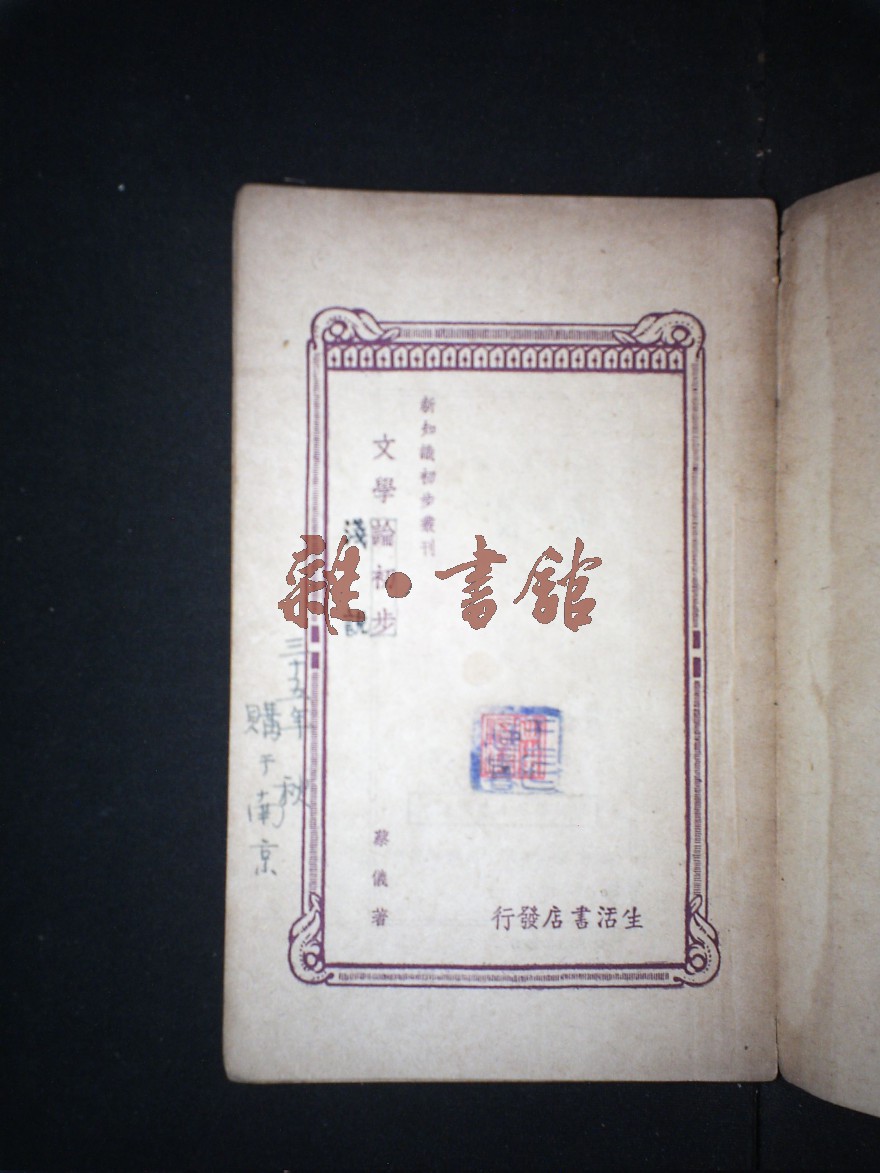 新知識初步叢刊
文學論初步
淺說
蔡儀著
生活書店發行
三十五年秋
購于南京
雜·書館